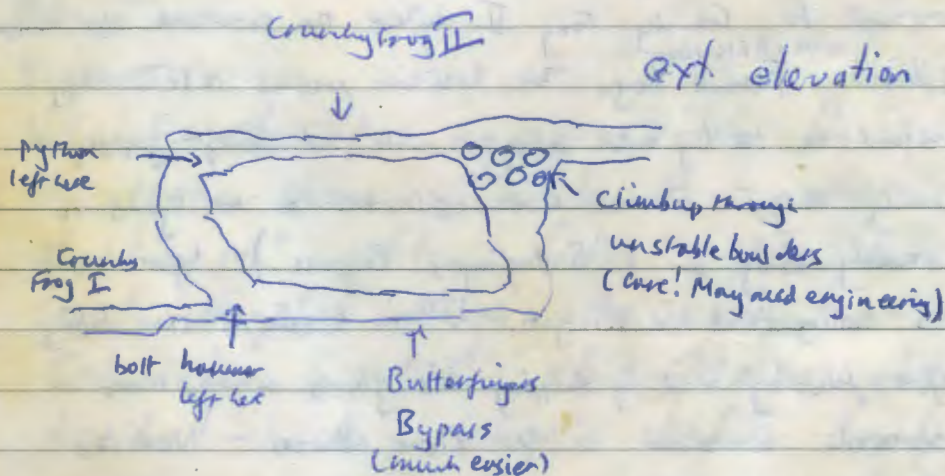 Crunchy Frog II
ext. elevation
python
left here
climb up through
unstable boulders
(care! May need engineering)
Crunchy
Frog I
bolt hammer
left here
Butterfingers
Bypass
(much easier)